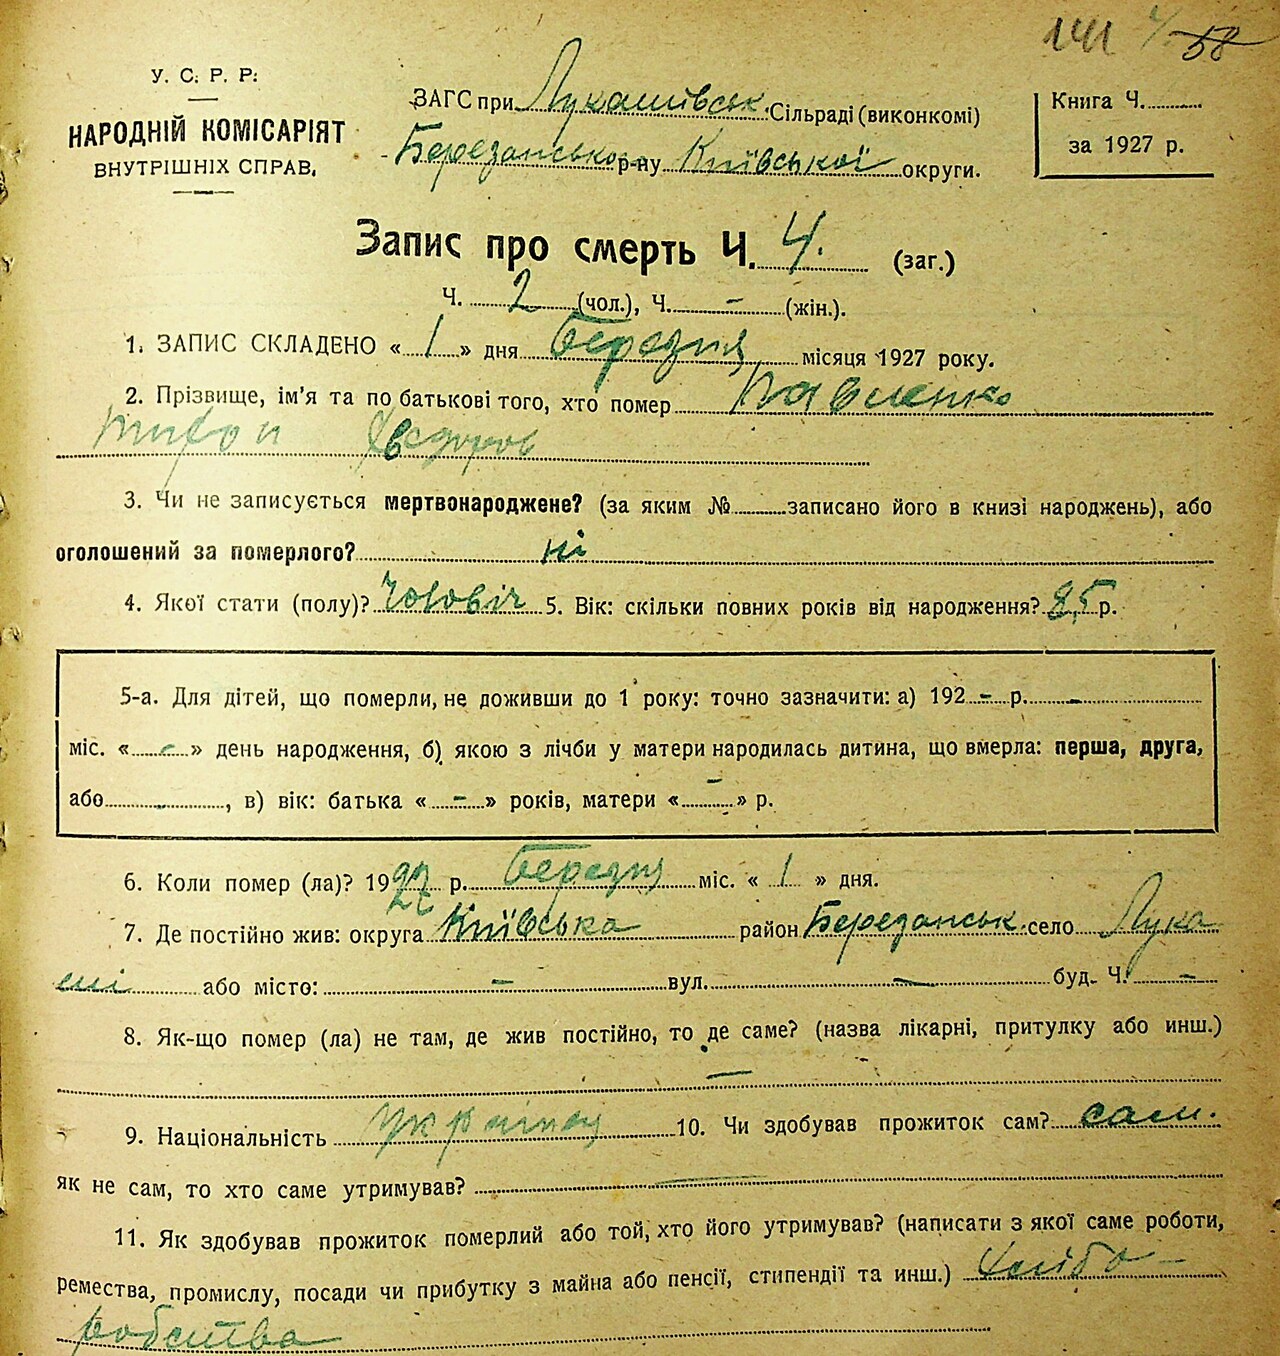 141 4 58
У. С. Р. Р.
НАРОДНІЙ КОМІСАРІЯТ
ВНУТРІШНІХ СПРАВ.
ЗАГС при Лукашівськ. Сільраді (виконкомі)
Березанського р-ну Київської округи.
Книга Ч.
за 1927 р.
Запис про смерть Ч. 4. (заг.)
Ч. 2 (чол.), Ч. - (жін.).
1. ЗАПИС СКЛАДЕНО «1» дня березня місяця 1927 року.
2. Прізвище, ім'я та по батькові того, хто помер Павленко
Трифон Хведоров
3. Чи не записується мертвонароджене? (за яким № записано його в книзі народжень), або
оголошений за померлого? ні
4. Якої стати (полу)? Чоловіч 5. Вік: скільки повних років від народження? 85 р.
5-а. Для дітей, що померли, не доживши до 1 року: точно зазначити: а) 192 - р. -
міс. « - » день народження, б) якою з лічби у матери народилась дитина, що вмерла: перша, друга,
або - , в) вік: батька « - » років, матери « - » р.
6. Коли помер (ла)? 1927 р. березня міс. « 1 » дня.
7. Де постійно жив: округа Київська район Березанськ. село Лука
ші або місто: - вул. - буд. Ч. -
8. Як-що помер (ла) не там, де жив постійно, то де саме? (назва лікарні, притулку або инш.)
-
9. Національність українец 10. Чи здобував прожиток сам? сам.
як не сам, то хто саме утримував? -
11. Як здобував прожиток померлий або той, хто його утримував? (написати з якої саме роботи,
ремества, промислу, посади чи прибутку з майна або пенсії, стипендії та инш.) хлібо-
робства